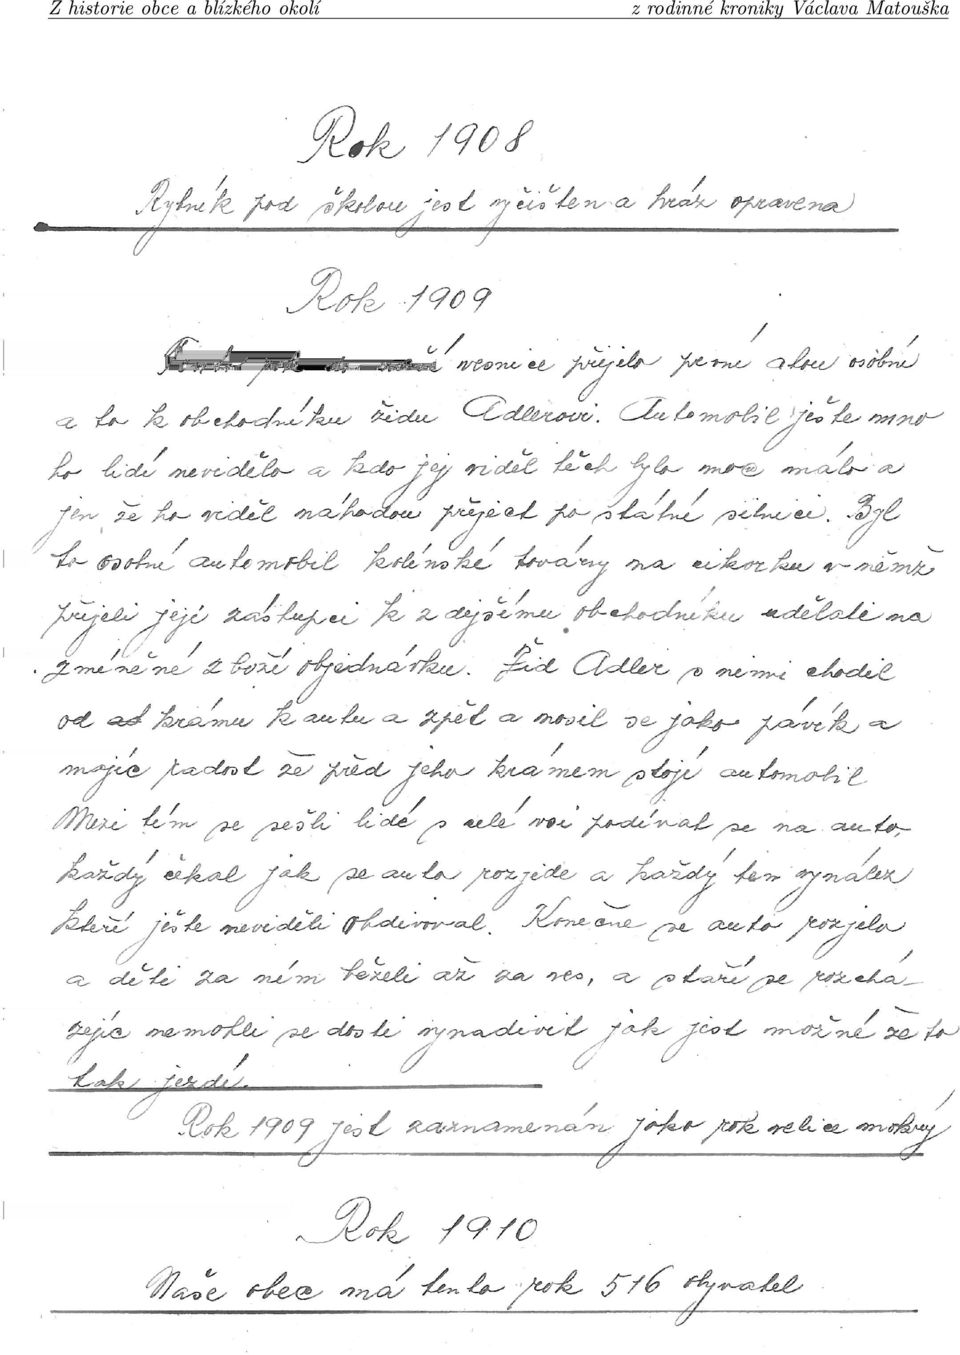 Z historie obce a blízkého okolí z rodinné kroniky Václava Matouška
Rok 1908
Rybník pod školou jest vyčištěn a hráz opravena
Rok 1909
vesnice přijelo první auto osobní
a to k obchodníku židu Adlerovi. Automobil ješte mno
ho lidí nevidělo a kdo jej viděl těch bylo moc málo a
jen že ho viděl náhodou přeject po státní silnici. Byl
to osobní automobil kolínské továrny na cikorku v němž
přijeli její zástupci k zdejšímu obchodníku udělali na
zméněčné zboží objednávku. Žid Adler s nimi chodil
od krámu k autu a zpět a nosil se jako pávík a
majíc radost že před jeho krámem stojí automobil
Mezi tím se sešli lidé s celé vsi podívat se na auto,
každý čekal jak se auto rozjede a každý ten vynález
kteří ješte neviděli obdivoval. Konečne se auto rozjelo
a děti za ním běželi až za ves, a staří se rozchá_
zejíc nemohli se dosti vynadivit jak jest možné že to
tak jezdí.
Rok 1909 jest zaznamenán jako rok velice mokrý
Rok 1910
Naše obec má tento rok 516 obyvatel